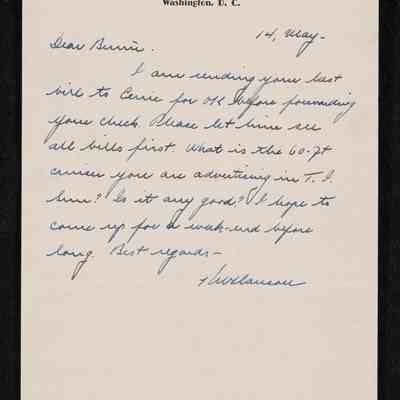 Washington, D. C.
14, May -
Dear Bunin.
I am sending your last
bill to Cerie for OK before forwarding
your check. Please let him see
all bills first. What is the 60-ft
cruiser you are advertising in T. I.
hum? Is it any good? I hope to
come up for a week-end before
long. Best regards -